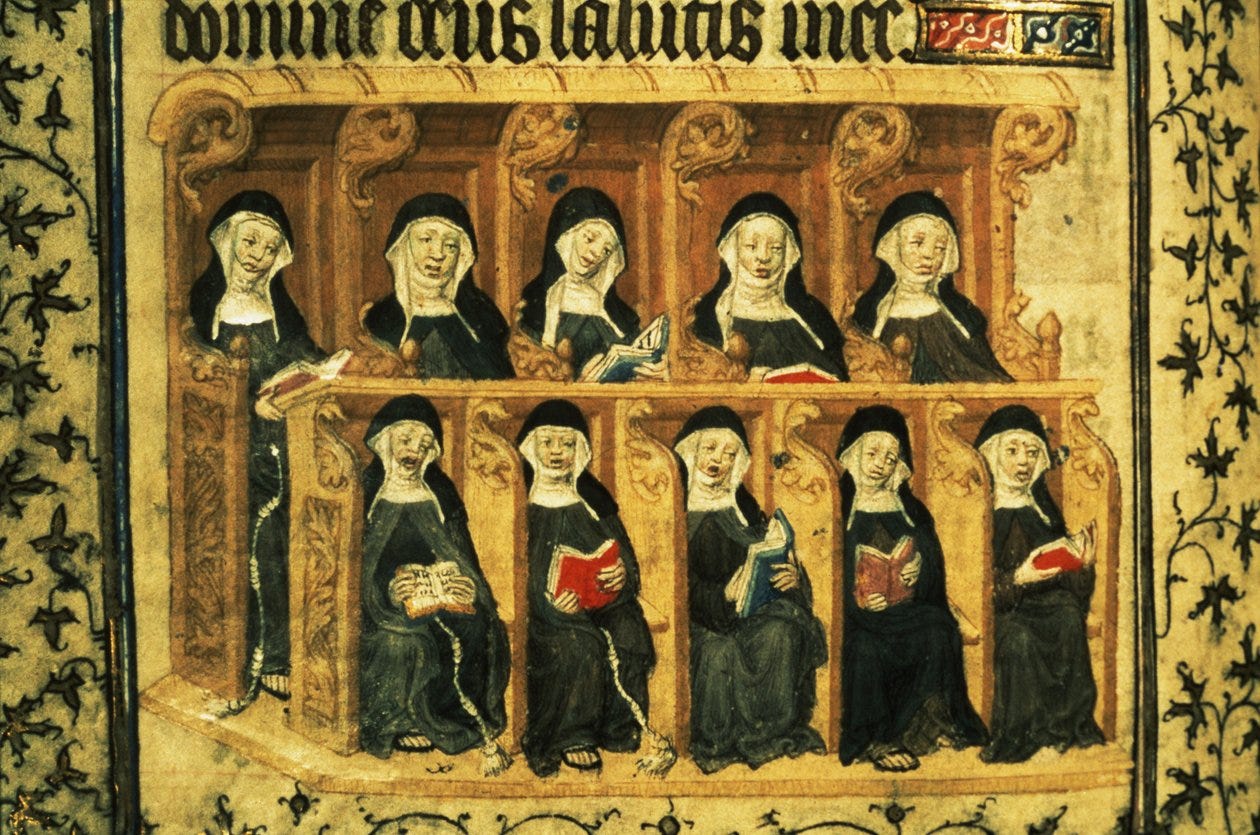 domine deus salutis mee.